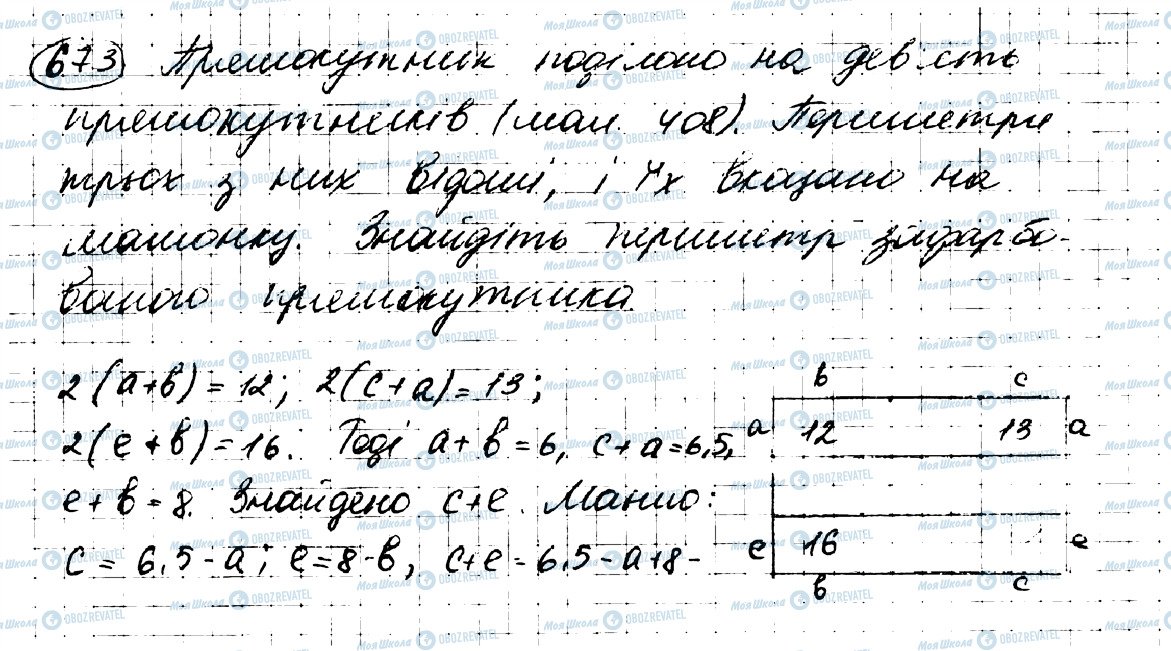 673 Прямокутник поділено на дев'ять
прямокутників (мал. 408). Периметри
трьох з них відомі, і їх вказано на
малюнку. Знайдіть периметр зафарбо-
ваного прямокутника.
2(a+b)=12; 2(c+a)=13;
2(e+b)=16. Тоді a+b=6, c+a=6,5,
e+b=8. Знайдено c+e. Маємо:
c=6,5-a; e=8-b, c+e=6,5-a+8-
b c
a 12 13 a
e 16 e
b c